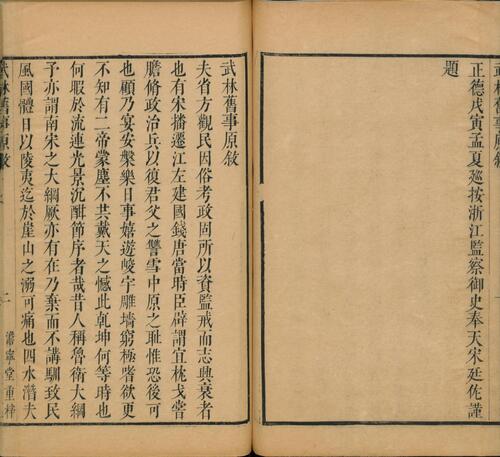 正德戊寅孟夏廵按浙江監察御史奉天宋廷佐謹
題
武林舊事原敘
武林舊事原敘
夫省方觀民因俗考政固所以資監戒而志興衰者
也有宋播遷江左建國錢唐當時臣辟謂宜枕戈嘗
膽脩政治兵以復君父之讐雪中原之耻惟恐後可
也顧乃宴安槃樂日事嬉遊峻宇雕墻窮極嗜欲更
不知有二帝蒙塵不共戴天之憾此乾坤何等時也
何暇於流連光景沉酣節序者哉昔人稱魯衛大綱
予亦謂南宋之大綱厥亦有在乃棄而不講馴致民
風國體日以陵夷迄於崖山之溺可痛也四水潛夫
武林舊事原敘
二